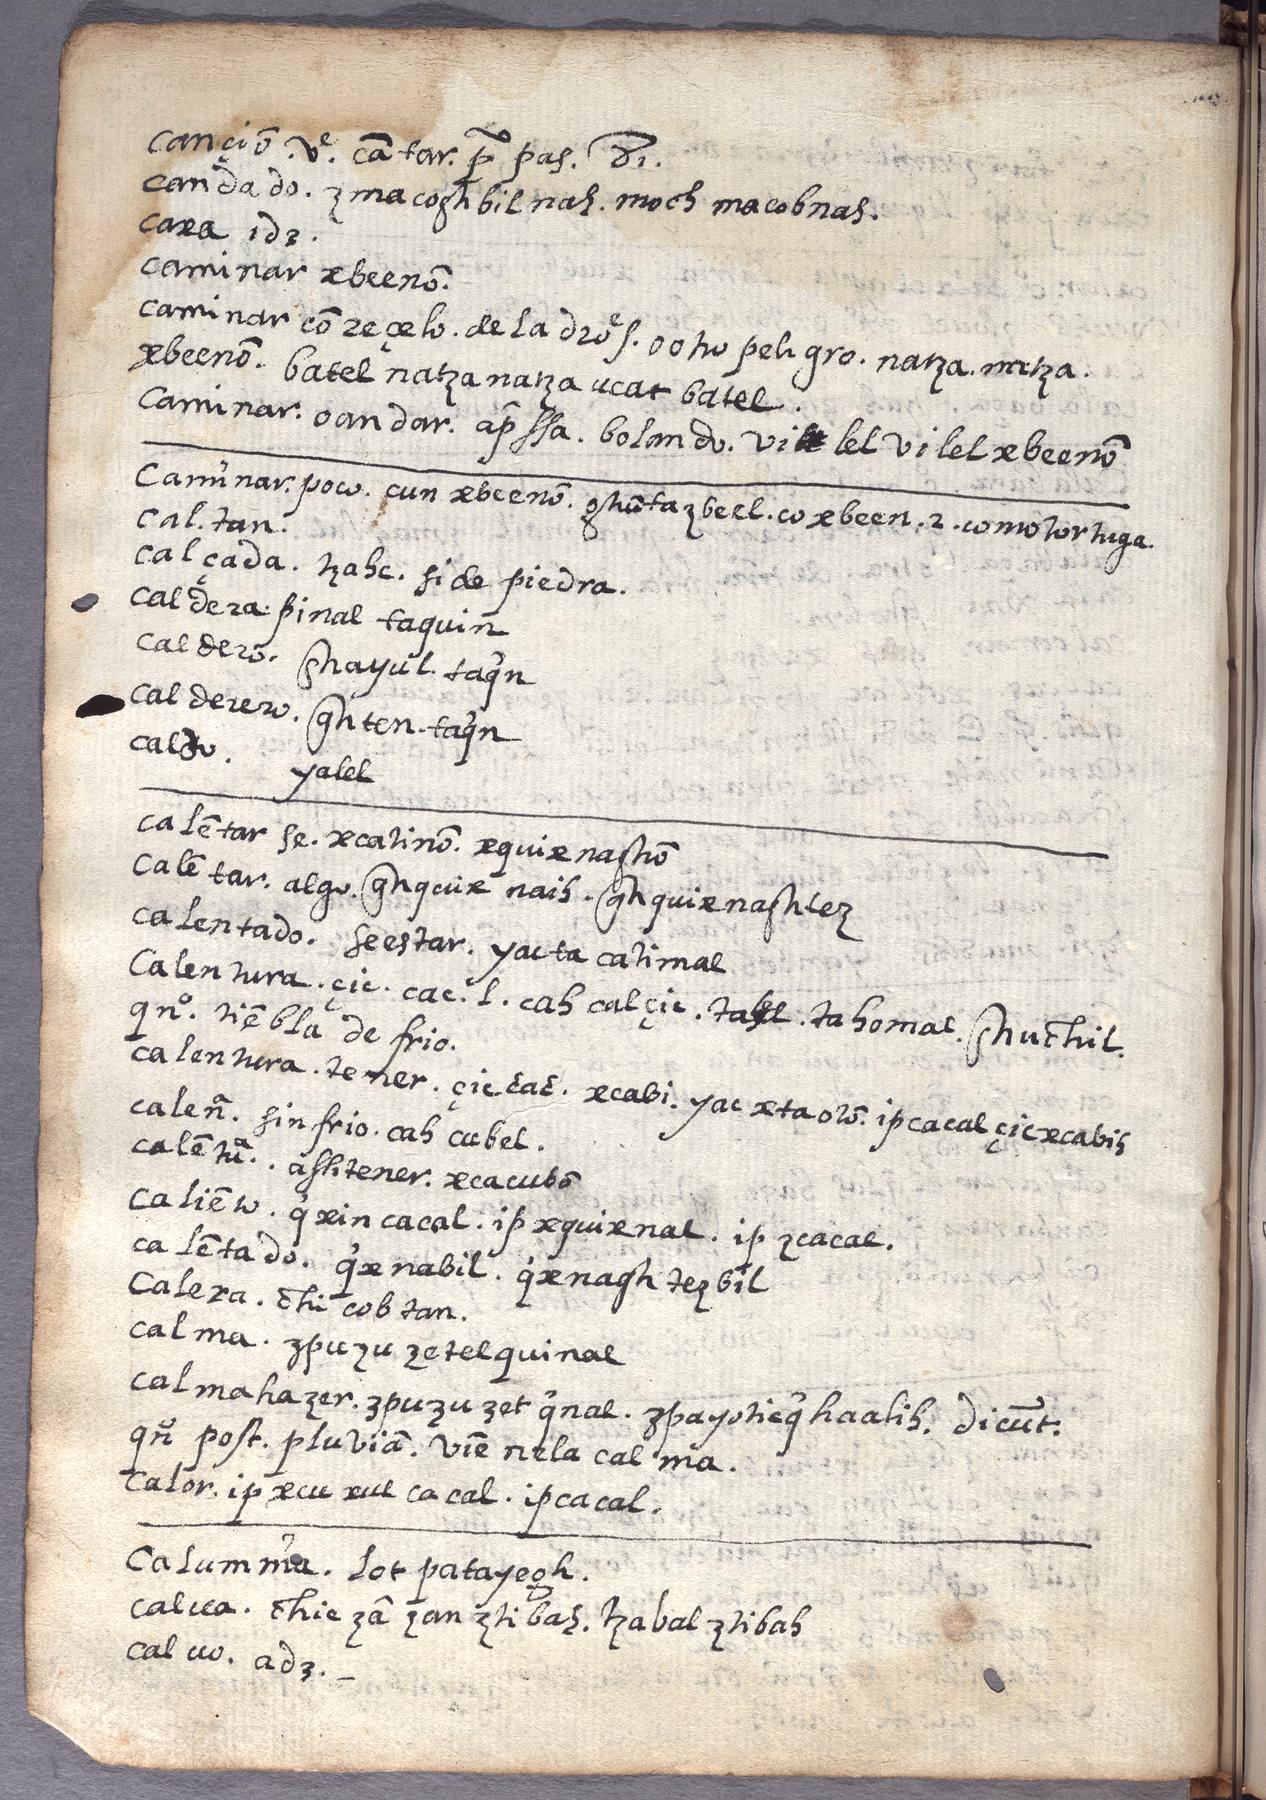 cançiō. vᵉ. cātar. p̄ pas. dī.
candado. zmacoghbil nah. moch macobnah.
caxa idz.
caminar xbeenō.
caminar cō reçelo. de ladroēs. o oto peligro. natza. natza.
xbeenō. batel natza natza ucat batel.
caminar. o andar. ap̄ ssa. bolando. vi lel vilel xbeenō
caminar. poco. cun xbeenō. ghūtazbeel. co xbeen. 2. como tortuga.
cal. tan.
calçada. tzahc. si de piedra.
caldera. pinal taquin
caldero. ghayul. taq̄n
calderero. ghten. taq̄n
caldo. yalel
calētar se. xcatinō. xquixnaghō
calētar. algo. ghquix naih. ghquixnaghtez
calentado. se estar. yacta catimal
calentura. çic. cac. l. cah calçic. tahomal. ghuchil.
qnº. tiēbla de frio.
calentura. tener. çic cac. xcabi. yac xta olō. ip cacal çicxcabih
calenª. sin frio. cah cubel.
calētuª. assi tener. xcacubō
caliēto. q̄xin cacal. ip xquixnal. ip zcacal.
calētado. q̄xnabil. q̄xnaghtezbil
calera. chi cobtan.
calma. zpuzu zetelquinal
calma hazer. zpuzu zet q̄nal. zpayoticq̄ haalih. dicūt.
qn̄ post. pluviā. viēnela calma.
calor. ip xcuxul cacal. ipcacal.
calumnia. lot patayegh.
calua. chic zā zan ztibah. tzabal ztibah
caluo. adz.